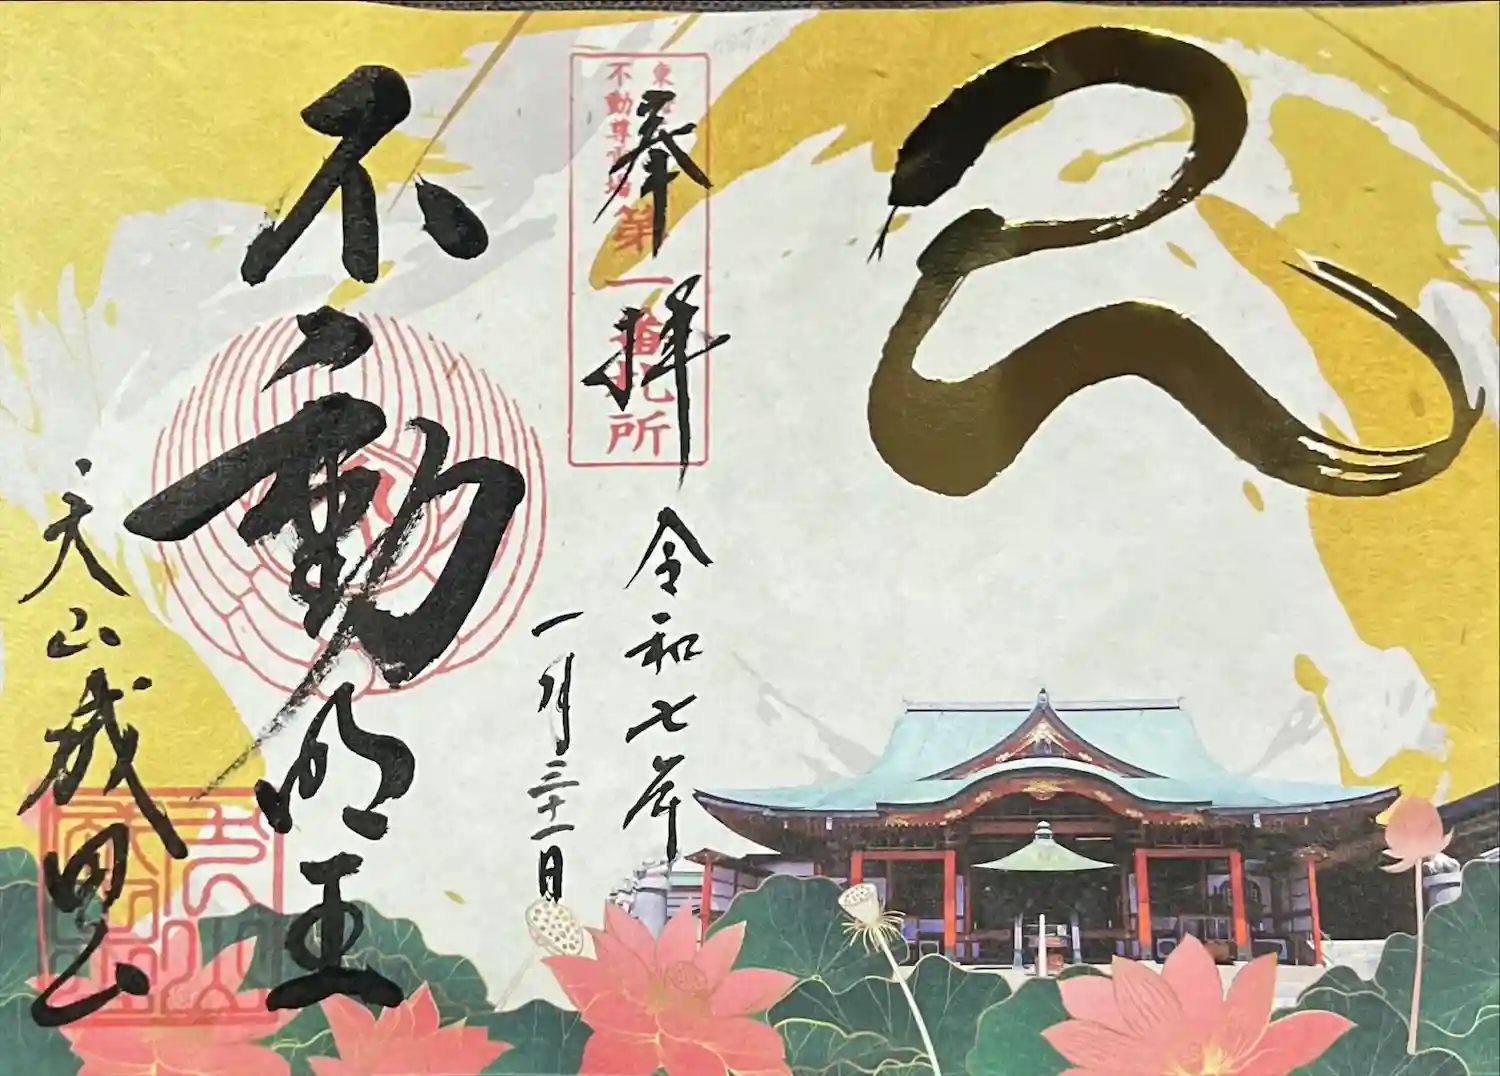 巳
奉拝
不動尊霊場
第一番札所
令和七年
一月三十一日
不動明王
犬山成田山